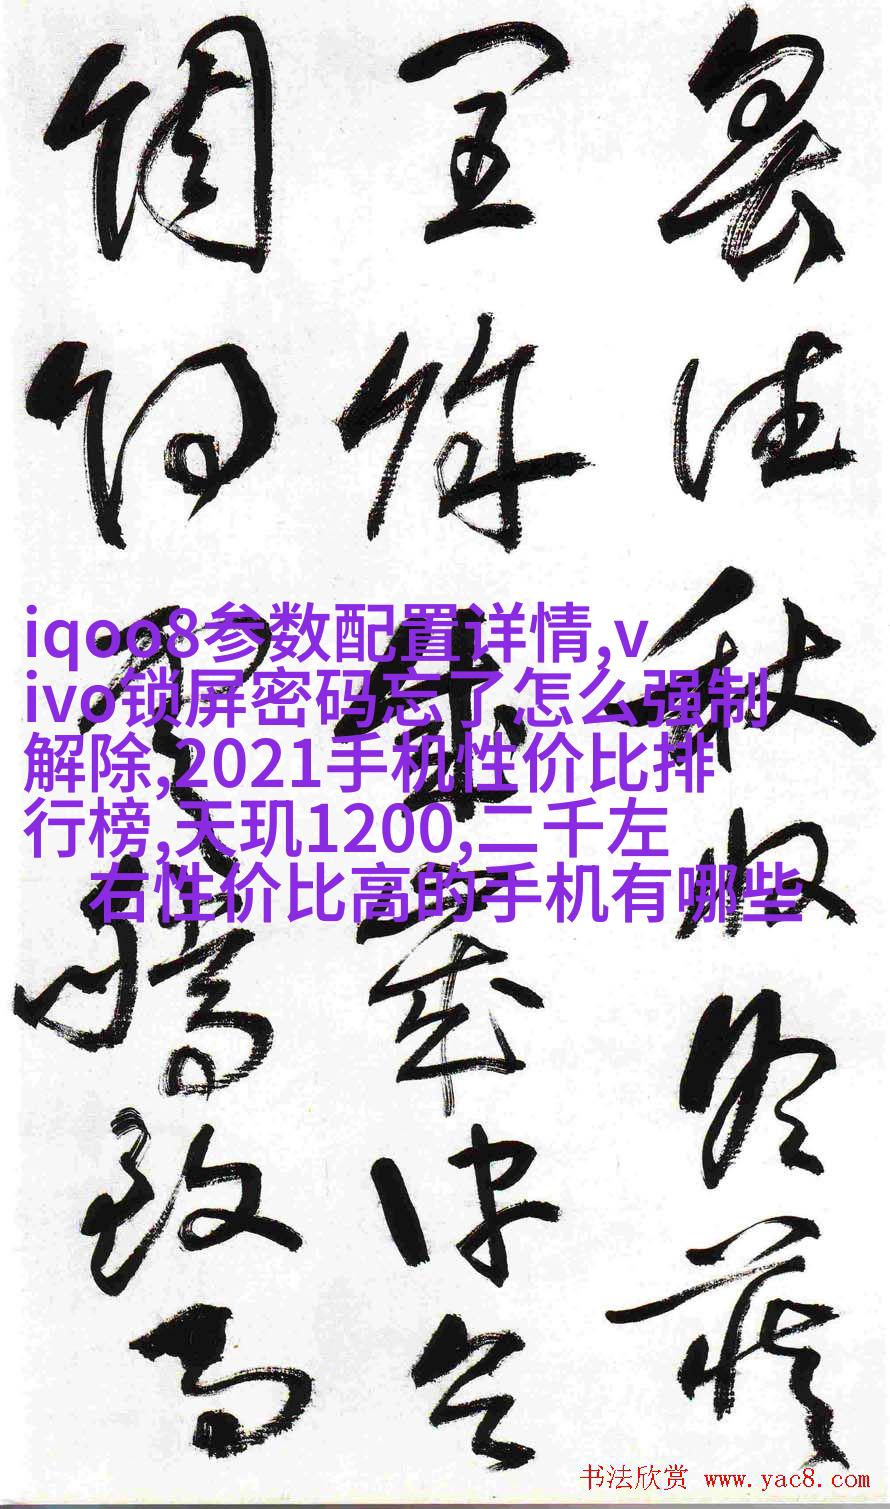 暑往秋收冬藏
閏餘成歲律呂
調陽雲騰致雨
iqoo8参数配置详情,v
ivo锁屏密码忘了怎么强制
解除,2021手机性价比排
行榜,天玑1200,二千左
右性价比高的手机有哪些
书法欣赏 www.yac8.com